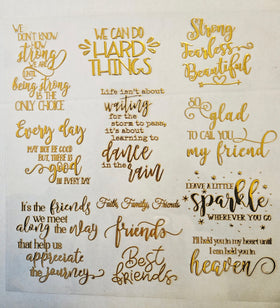 WE
DON'T KNOW
HOW
strong
WE ARE
UNTIL
being strong
IS THE
ONLY CHOICE
WE CAN DO
HARD
THINGS
Strong
Fearless
Beautiful
Every day
MAY NOT BE GOOD
BUT, THERE IS
good
IN EVERY DAY
Life isn't about
waiting
for the
storm to pass,
it's about
learning to
dance
in the
rain
SO
glad
TO CALL YOU
my friend
It's the friends
we meet
along the way
that help us
appreciate
the journey
Faith, Family, Friends
friends
Best
friends
LEAVE A LITTLE
sparkle
WHEREVER YOU GO
I'll hold you in my heart until
I can hold you in
heaven